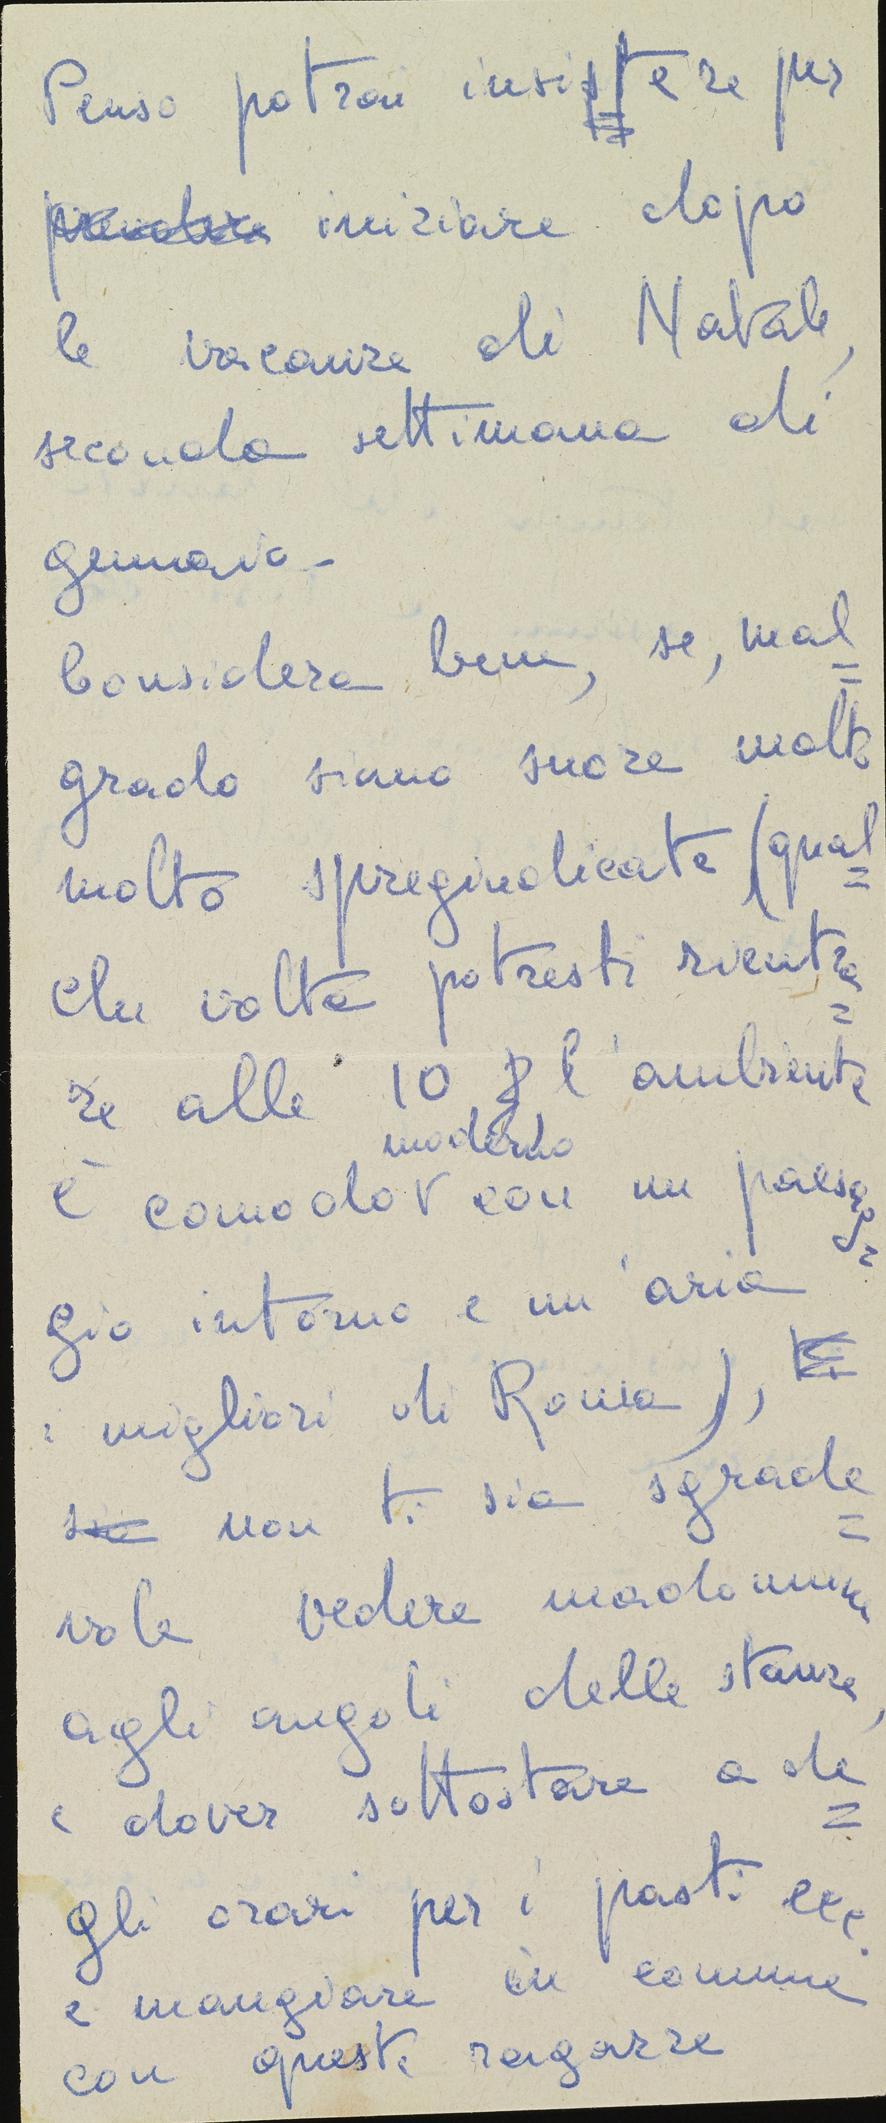 Penso potrai insistere per
prendere iniziare dopo
le vacanze di Natale,
seconda settimana di
gennaio -
Considera bene, se, mal=
grado siano suore molto
molto spregiudicate (qual=
che volta potresti rientra=
re alle 10 l'ambiente
moderno
è comodo V con un paesag=
gio intorno e un'aria
i migliori di Roma),
sia non ti sia sgrade=
vole vedere madonnine
agli angoli delle stanze,
e dover sottostare a de=
gli orari per i pasti ecc.
e mangiare in comune
con queste ragazze